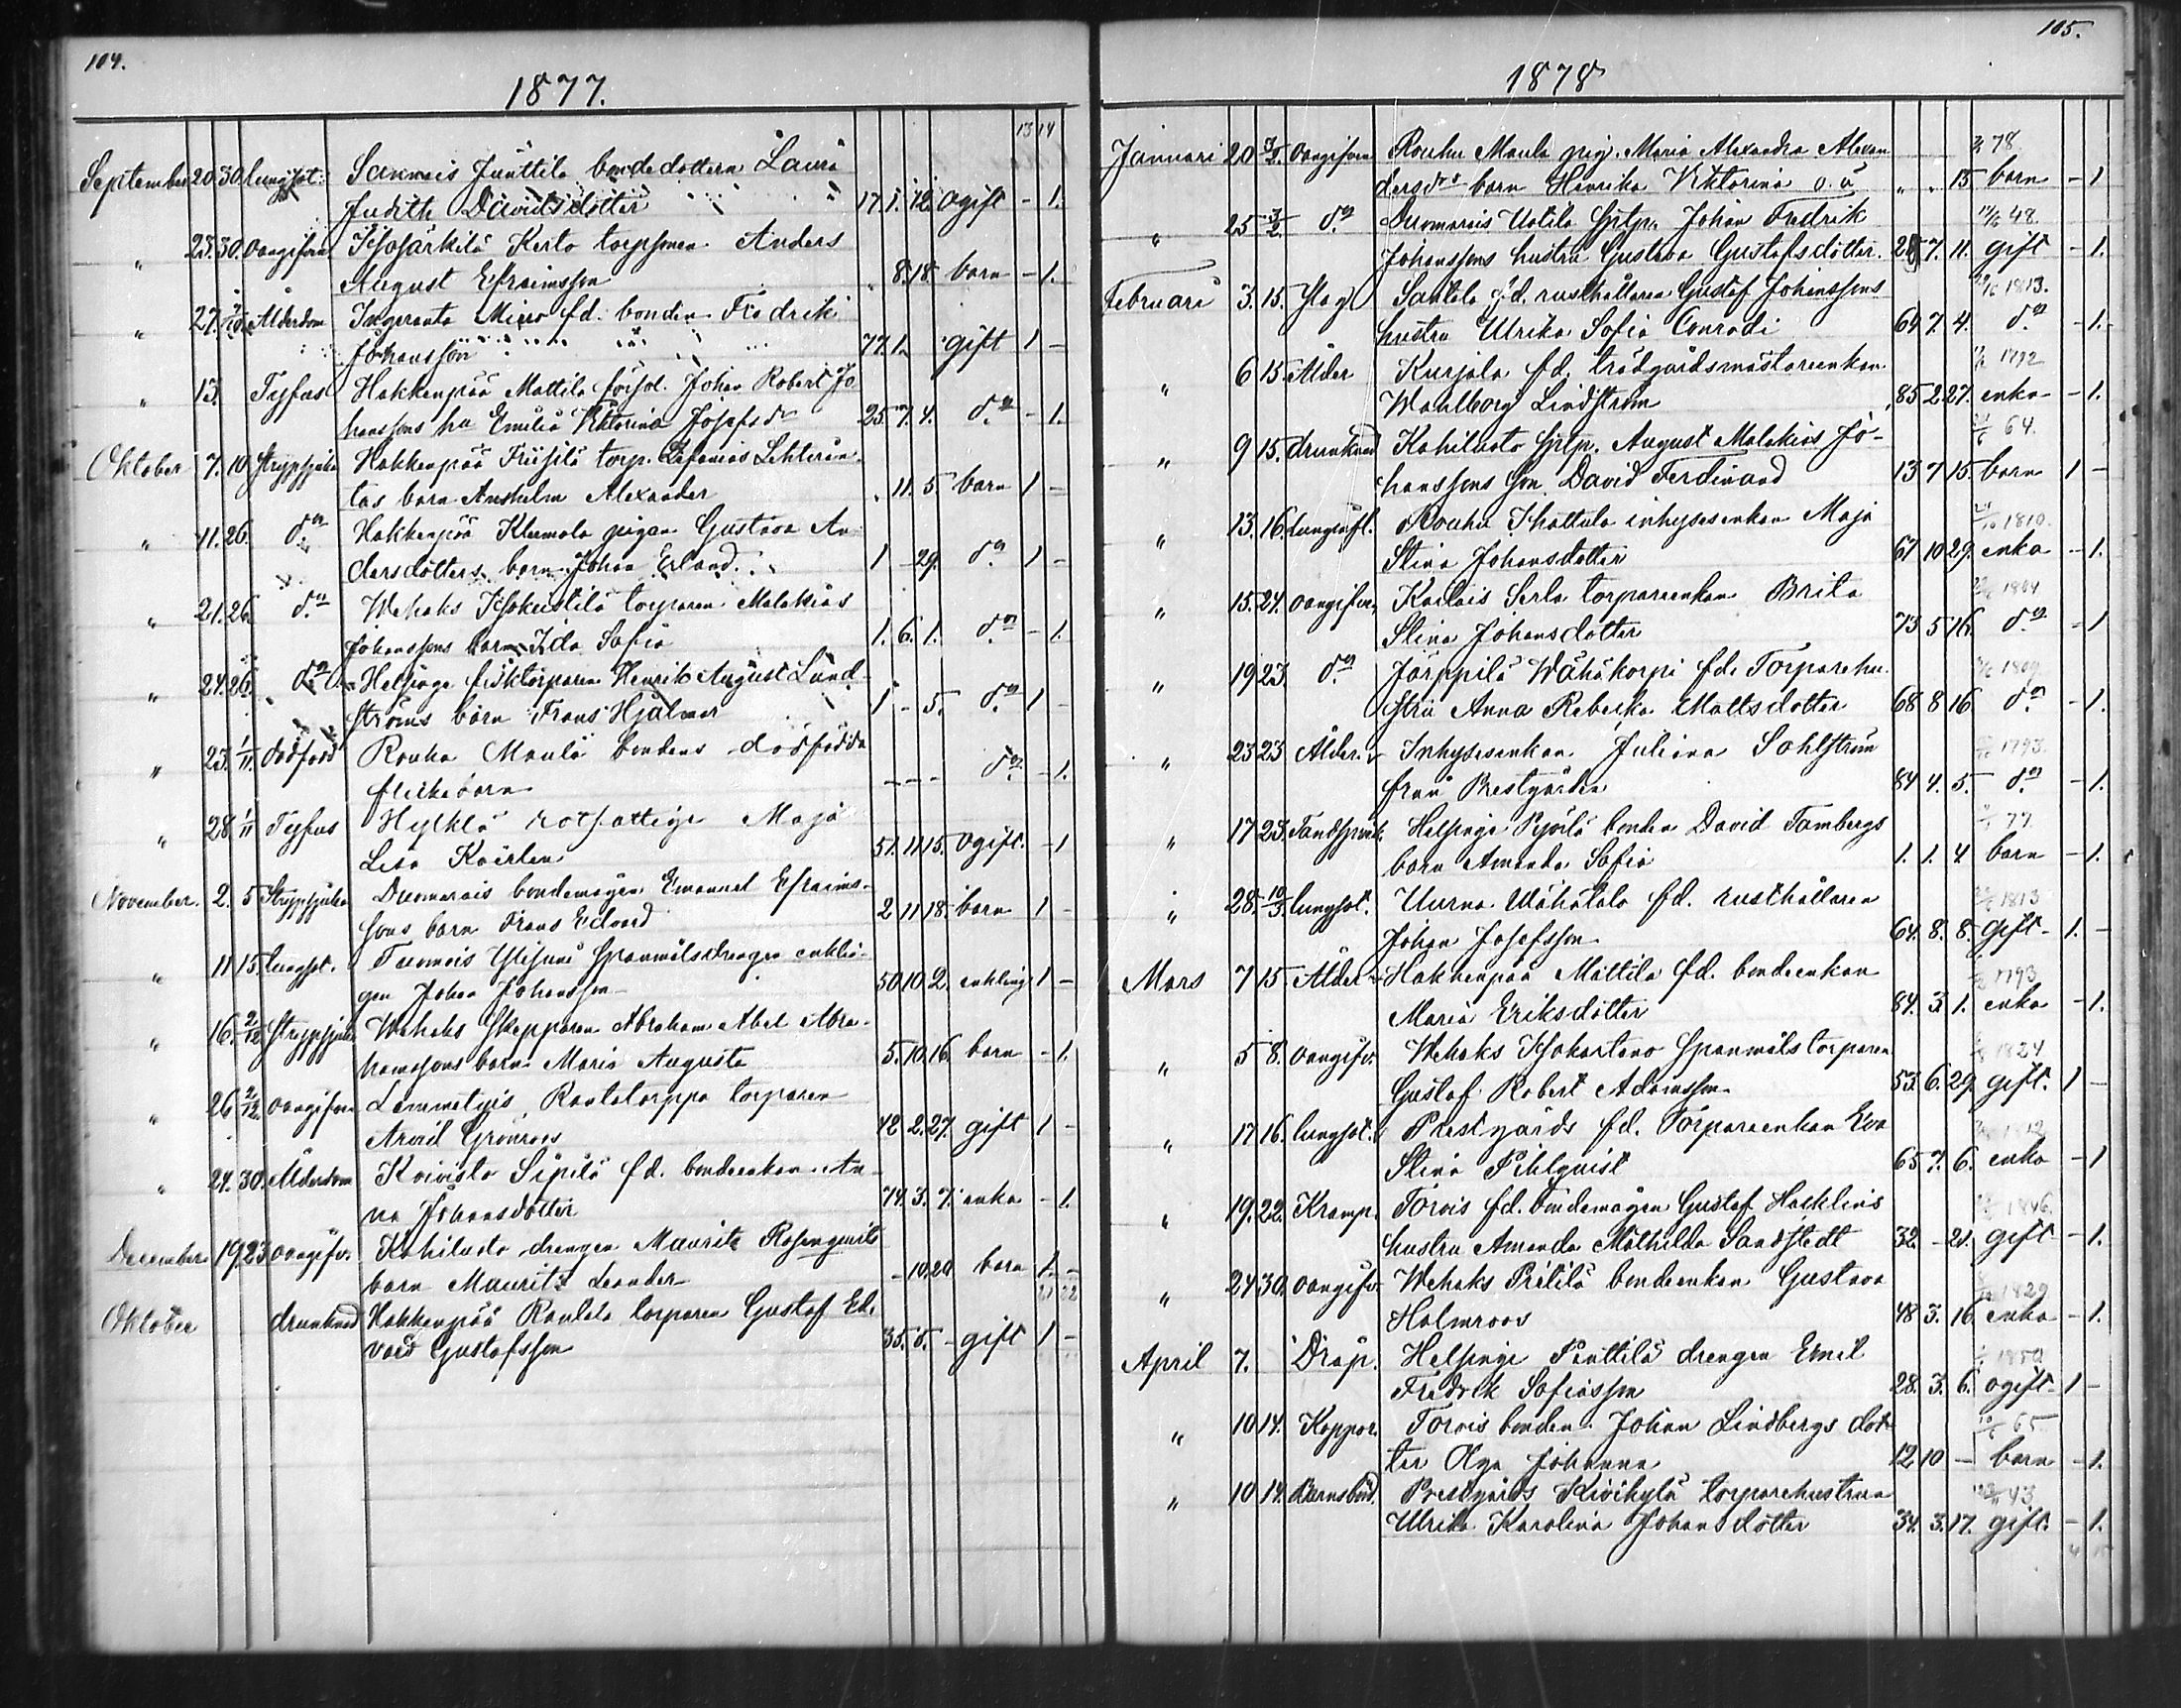 104.
1877.
13 14
September 20. 30. lungsot. Sannais Junttila bondedottern Laura
Judith Davidsdotter 17. 1. 12. ogift - 1.
" 23. 30. oangifven Isosärkilä Kerto torpsonen Anders
August Efraimsson " 8. 18. barn - 1.
" 27. Alderdom fd. bonden Fredrik
Johansson 77. 1. gift 1 -
" 13. Tyfus Hakkenpää Mattila Johan Robert Jo
hanssons hu Emilia Viktorina Josefsdr 25. 7. 4. do - 1.
Oktober 7. 10. strypsjuka Hakkenpää torp.
tas barn Anshelm Alexander " 11. 5 barn 1 -
" 11. 26. do Hakkenpää Klemola pigan Gustava An
dersdotters barn Johan Erland 1 - 29. do 1 -
" 21. 26. do Wehaks torparen Malakias
Johanssons barn Ida Sofia 1. 6. 1. do - 1.
" 24. 26. do Helsinge Henrik August Lund
ströms barn Frans Hjalmar 1 - 5. do 1 -
" 23. 1/11. dödfödd Rouhu Maula bondens dödfödda
flickebarn - - - do - 1.
" 28. 1/11 Tyfus Maja
Lisa 51. 11. 15. ogift. - 1
November. 2. 5 Strypsjuka bondemågen Emanuel Efraims-
sons barn Frans Edvard 2 11 18. barn 1 -
" 11 15. lungsot. enklin-
gen Johan Johansson 50 10. 2. enkling 1 -
" 16. 2/12 strypsjuka Wehaks Skepparen Abraham Abel Abra-
hamssons barn Maria Augusta 5. 10. 16. barn - 1.
" 26 2/12. oangifven Lemmetyis Rantatorppa torparen
Arvid Grönroos 42 2. 27. gift 1 -
" 24. 30. Alderdom Koivisto Sipilä fd. bondeenkan An-
na Johansdotter 74. 3. 7. enka - 1.
December 19. 23 oangifv. Kahiluoto drengen Mauritz Rosenqvists
barn Mauritz Leander - 10. 20 barn 1. -
Oktober drunknad Hakkenpää Rantala torparen Gustaf Ed-
vard Gustafsson 35. 5. - gift 1 -
105.
1878
Januari 20 3/2. oangifven Rouhu Maula pig. Maria Alexandra Alexan 78.
dersdrs barn Henrika Viktorina o. ä " " 15 barn - 1
" 25 3/2. do Uotila Johan Fredrik 48.
Johanssons hustru Gustava Gustafsdotter. 7. 11. gift - 1.
Februari 3. 15. Slag Santala f.d. rusthållaren Gustaf Johanssons 1813.
hustru Ulrika Sofia Conradi 64 7. 4. do - 1.
" 6 15 Ålder Kurjala fd. trädgårdsmästareenkan 1792
Wahlborg Lindström 85 2. 27. enka - 1.
" 9 15. drunknad Kahiluoto August Malakias Jo- 64.
hanssons son David Ferdinand 13 7 15. barn 1 -
" 13. 16. lunginfl. Rouhu inhysesenkan Maja 1810.
Stina Johansdotter 67 10 29. enka - 1.
" 15. 24. oangifven torpareenkan Brita 1804
Stina Johansdotter 73 5 16. do - 1
" 19 23. do Järppilä Wähäkorpi fd. Torparehu- 1809
stru Anna Rebecka Mattsdotter 68 8 16 do - 1.
" 23 23 Ålder. Inhysesenkan Juliana Sahlström 1793.
från Prestgården 84 4. 5. do - 1.
" 17 23. Helsinge bonden David Tambergs 77
barn Amanda Sofia 1. 1. 4 barn - 1.
" 28. 10/3. lungsot. Uurna Wähätalo fd. rusthållaren 1813
Johan Josefsson 64. 8. 8. gift 1. -
Mars 7 15 Ålder Hakkenpää Mattila fd. bondeenkan 1793
Maria Eriksdotter 84. 3. 1. enka - 1.
" 5 8. oangifv. Wehaks Isokartano spanmålstorparen 1824
Gustaf Robert Adamsson 53. 6. 29. gift. 1 -
" 17 16. lungsot. Prestgårds fd. Torpareenkan Eva 1812
Stina Pihlqvist 65 7. 6. enka - 1
" 19. 22. Kramp. Torois fd. bondemågen Gustaf Hacklins 1846.
hustru Amanda Mathilda Sandstedt 32 - 21. gift - 1.
" 24 30. oangifv. Wehaks Prättilä bondeenkan Gustava 1829
Holmroos 48 3. 16. enka - 1.
April 7. Dråp. Helsinge Penttilä drengen Emil 1850
Fredrik Sofiasson 28. 3. 6. ogift 1 -
" 10 14. Koppor. Torois bonden Johan Lindbergs dot- 65
ter Olga Johanna 12 10 - barn - 1.
" 10 14. Barnsbörd. Prestgårds Kivikylä torparehustrun 43
Ulrika Karolina Johansdotter 34. 3. 17. gift. - 1.